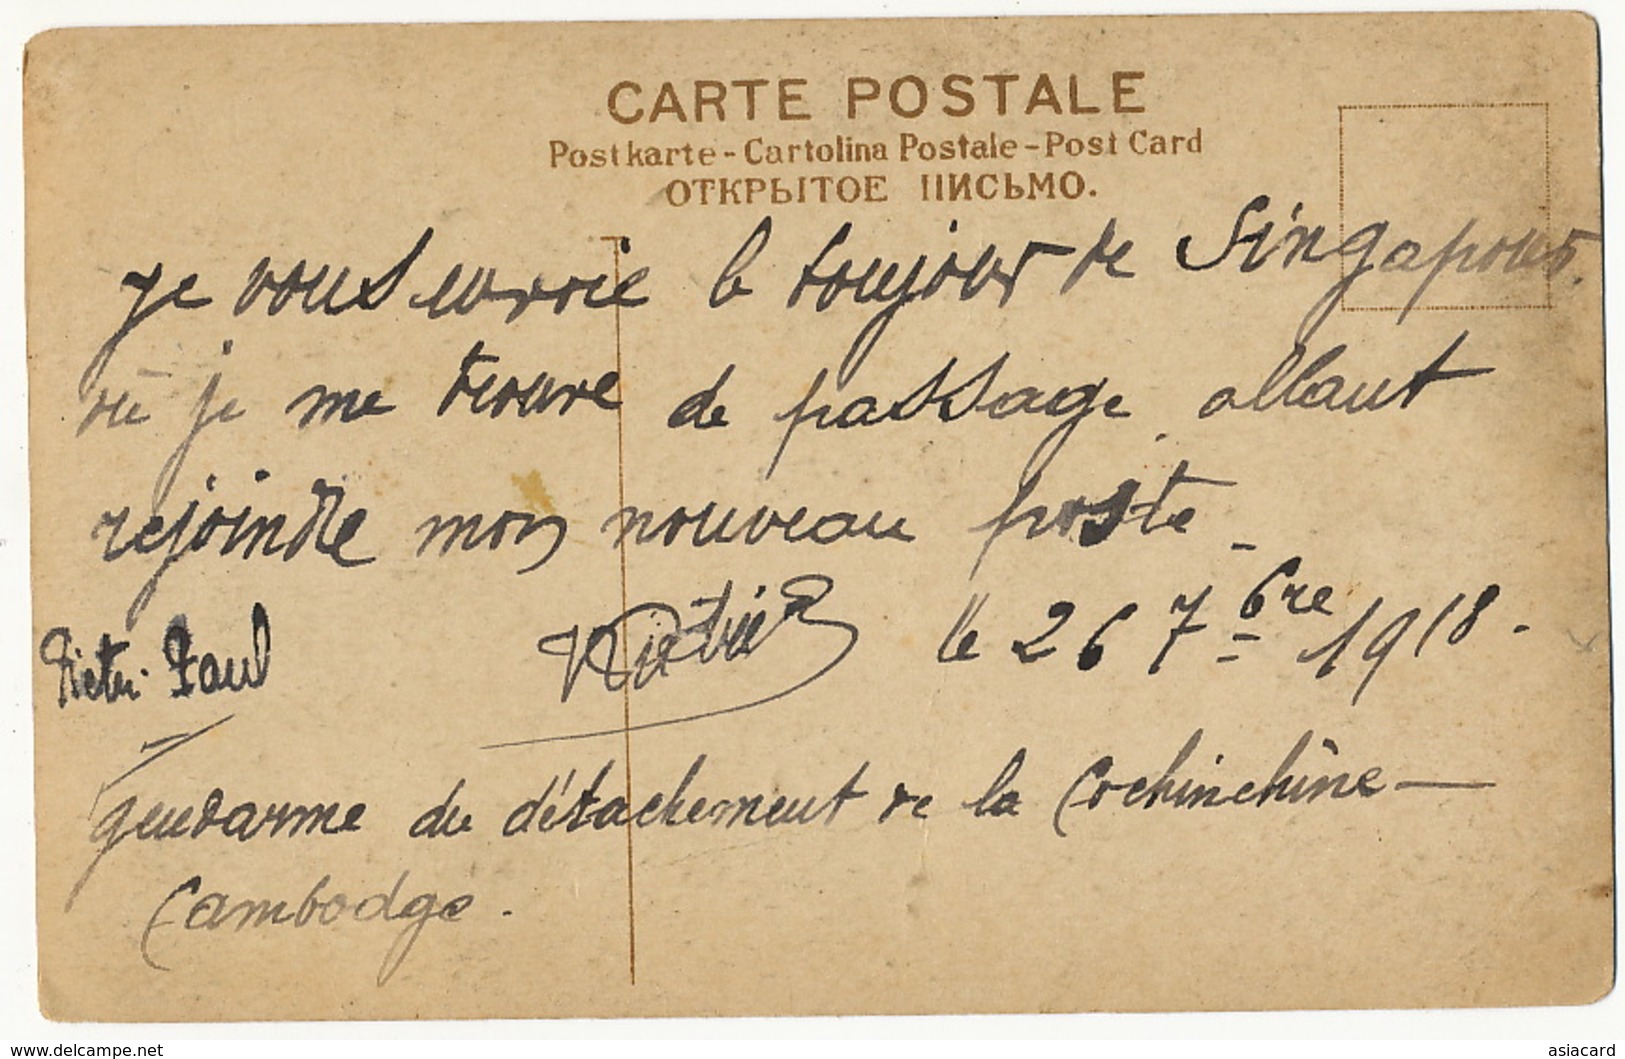 CARTE POSTALE
Postkarte - Cartolina Postale - Post Card
ОТКРЫТОЕ ПИСЬМО.
je vous envoie le toujour de Singapour
où je me trouve de passage allant
rejoindre mon nouveau poste
le 26 7bre 1918.
Pietri Paul
gendarme du détachement de la Cochinchine
Cambodge.
www.delcampe.net
asiacard